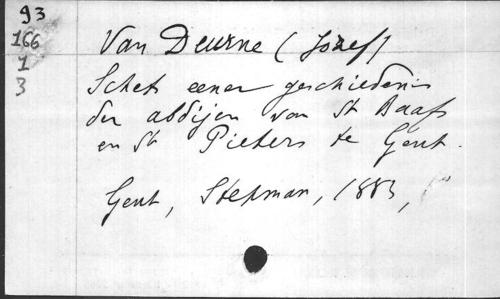 93
166
1
3
Van Deurne (Jozef)
Schets eener geschiedenis
der abdijen van St Baafs
en St Pieters te Gent.
Gent, Stepman, 1883,